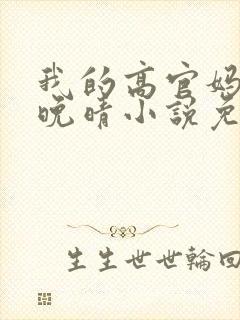 我的高官妈
晚晴小说免
生生世世輪回